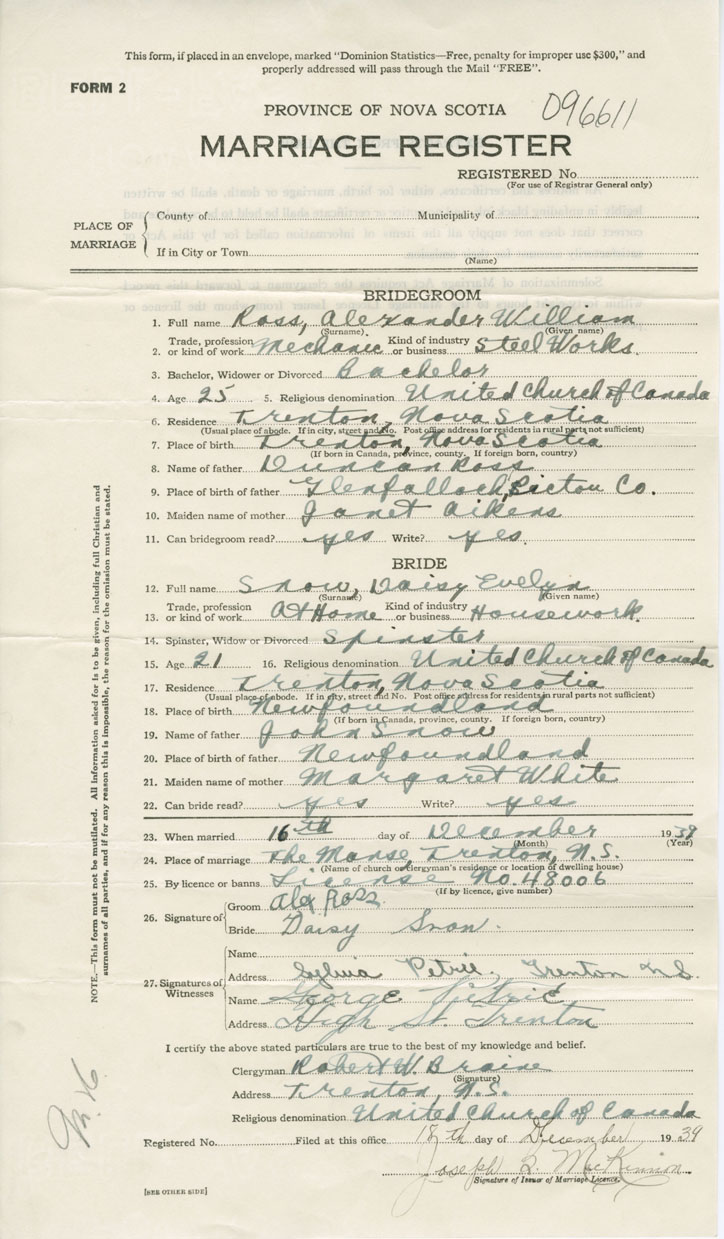 This form, if placed in an envelope, marked "Dominion Statistics—Free, penalty for improper use $300," and
properly addressed will pass through the Mail "FREE".
FORM 2
PROVINCE OF NOVA SCOTIA 096611
MARRIAGE REGISTER
REGISTERED No.
(For use of Registrar General only)
PLACE OF MARRIAGE
County of Municipality of
If in City or Town
(Name)
BRIDEGROOM
1. Full name Ross, Alexander William
(Surname) (Given name)
2. Trade, profession or kind of work Mechanic Kind of industry or business Steel Works.
3. Bachelor, Widower or Divorced Bachelor
4. Age 25 5. Religious denomination United Church of Canada
6. Residence Trenton, Nova Scotia
(Usual place of abode. If in city, street and No. Post office address for residents in rural parts not sufficient)
7. Place of birth Trenton, Nova Scotia
(If born in Canada, province, county. If foreign born, country)
8. Name of father Duncan Ross
9. Place of birth of father Glenfalloch, Pictou Co.
10. Maiden name of mother Janet Aikens
11. Can bridegroom read? yes Write? yes.
BRIDE
12. Full name Snow, Daisy Evelyn
(Surname) (Given name)
13. Trade, profession or kind of work At Home Kind of industry or business Housework.
14. Spinster, Widow or Divorced Spinster
15. Age 21 16. Religious denomination United Church of Canada
17. Residence Trenton, Nova Scotia
(Usual place of abode. If in city, street and No. Post office address for residents in rural parts not sufficient)
18. Place of birth Newfoundland
(If born in Canada, province, county. If foreign born, country)
19. Name of father John Snow
20. Place of birth of father Newfoundland
21. Maiden name of mother Margaret White
22. Can bride read? yes Write? yes
23. When married 16th day of December 1939
(Month) (Year)
24. Place of marriage The Manse, Trenton, N.S.
(Name of church or clergyman's residence or location of dwelling house)
25. By licence or banns License No. 48006
(If by licence, give number)
26. Signature of
Groom Alex Ross
Bride Daisy Snow.
27. Signatures of Witnesses
Name
Address Sylvia Petrie, Trenton N.S.
Name George Petrie
Address High St. Trenton
I certify the above stated particulars are true to the best of my knowledge and belief.
Clergyman Robert W. Braine
(Signature)
Address Trenton, N.S.
Religious denomination United Church of Canada
Registered No. Filed at this office 18th day of December 1939
Joseph B. MacKinnon
Signature of Issuer of Marriage Licence.
[SEE OTHER SIDE]
NOTE.—This form must not be mutilated. All information asked for is to be given, including full Christian and
surnames of all parties, and if for any reason this is impossible, the reason for the omission must be stated.